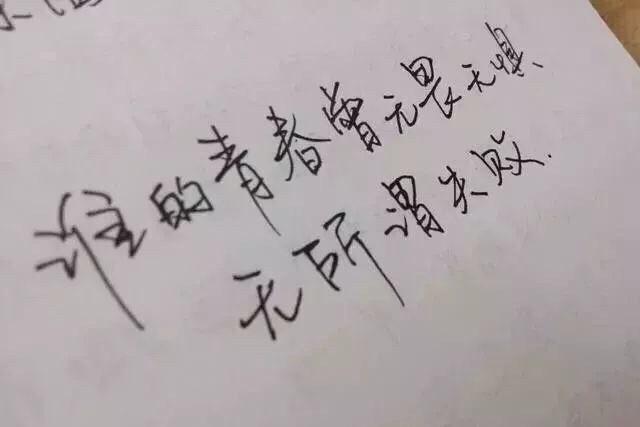 谁的青春曾无畏无惧
无所谓失败.